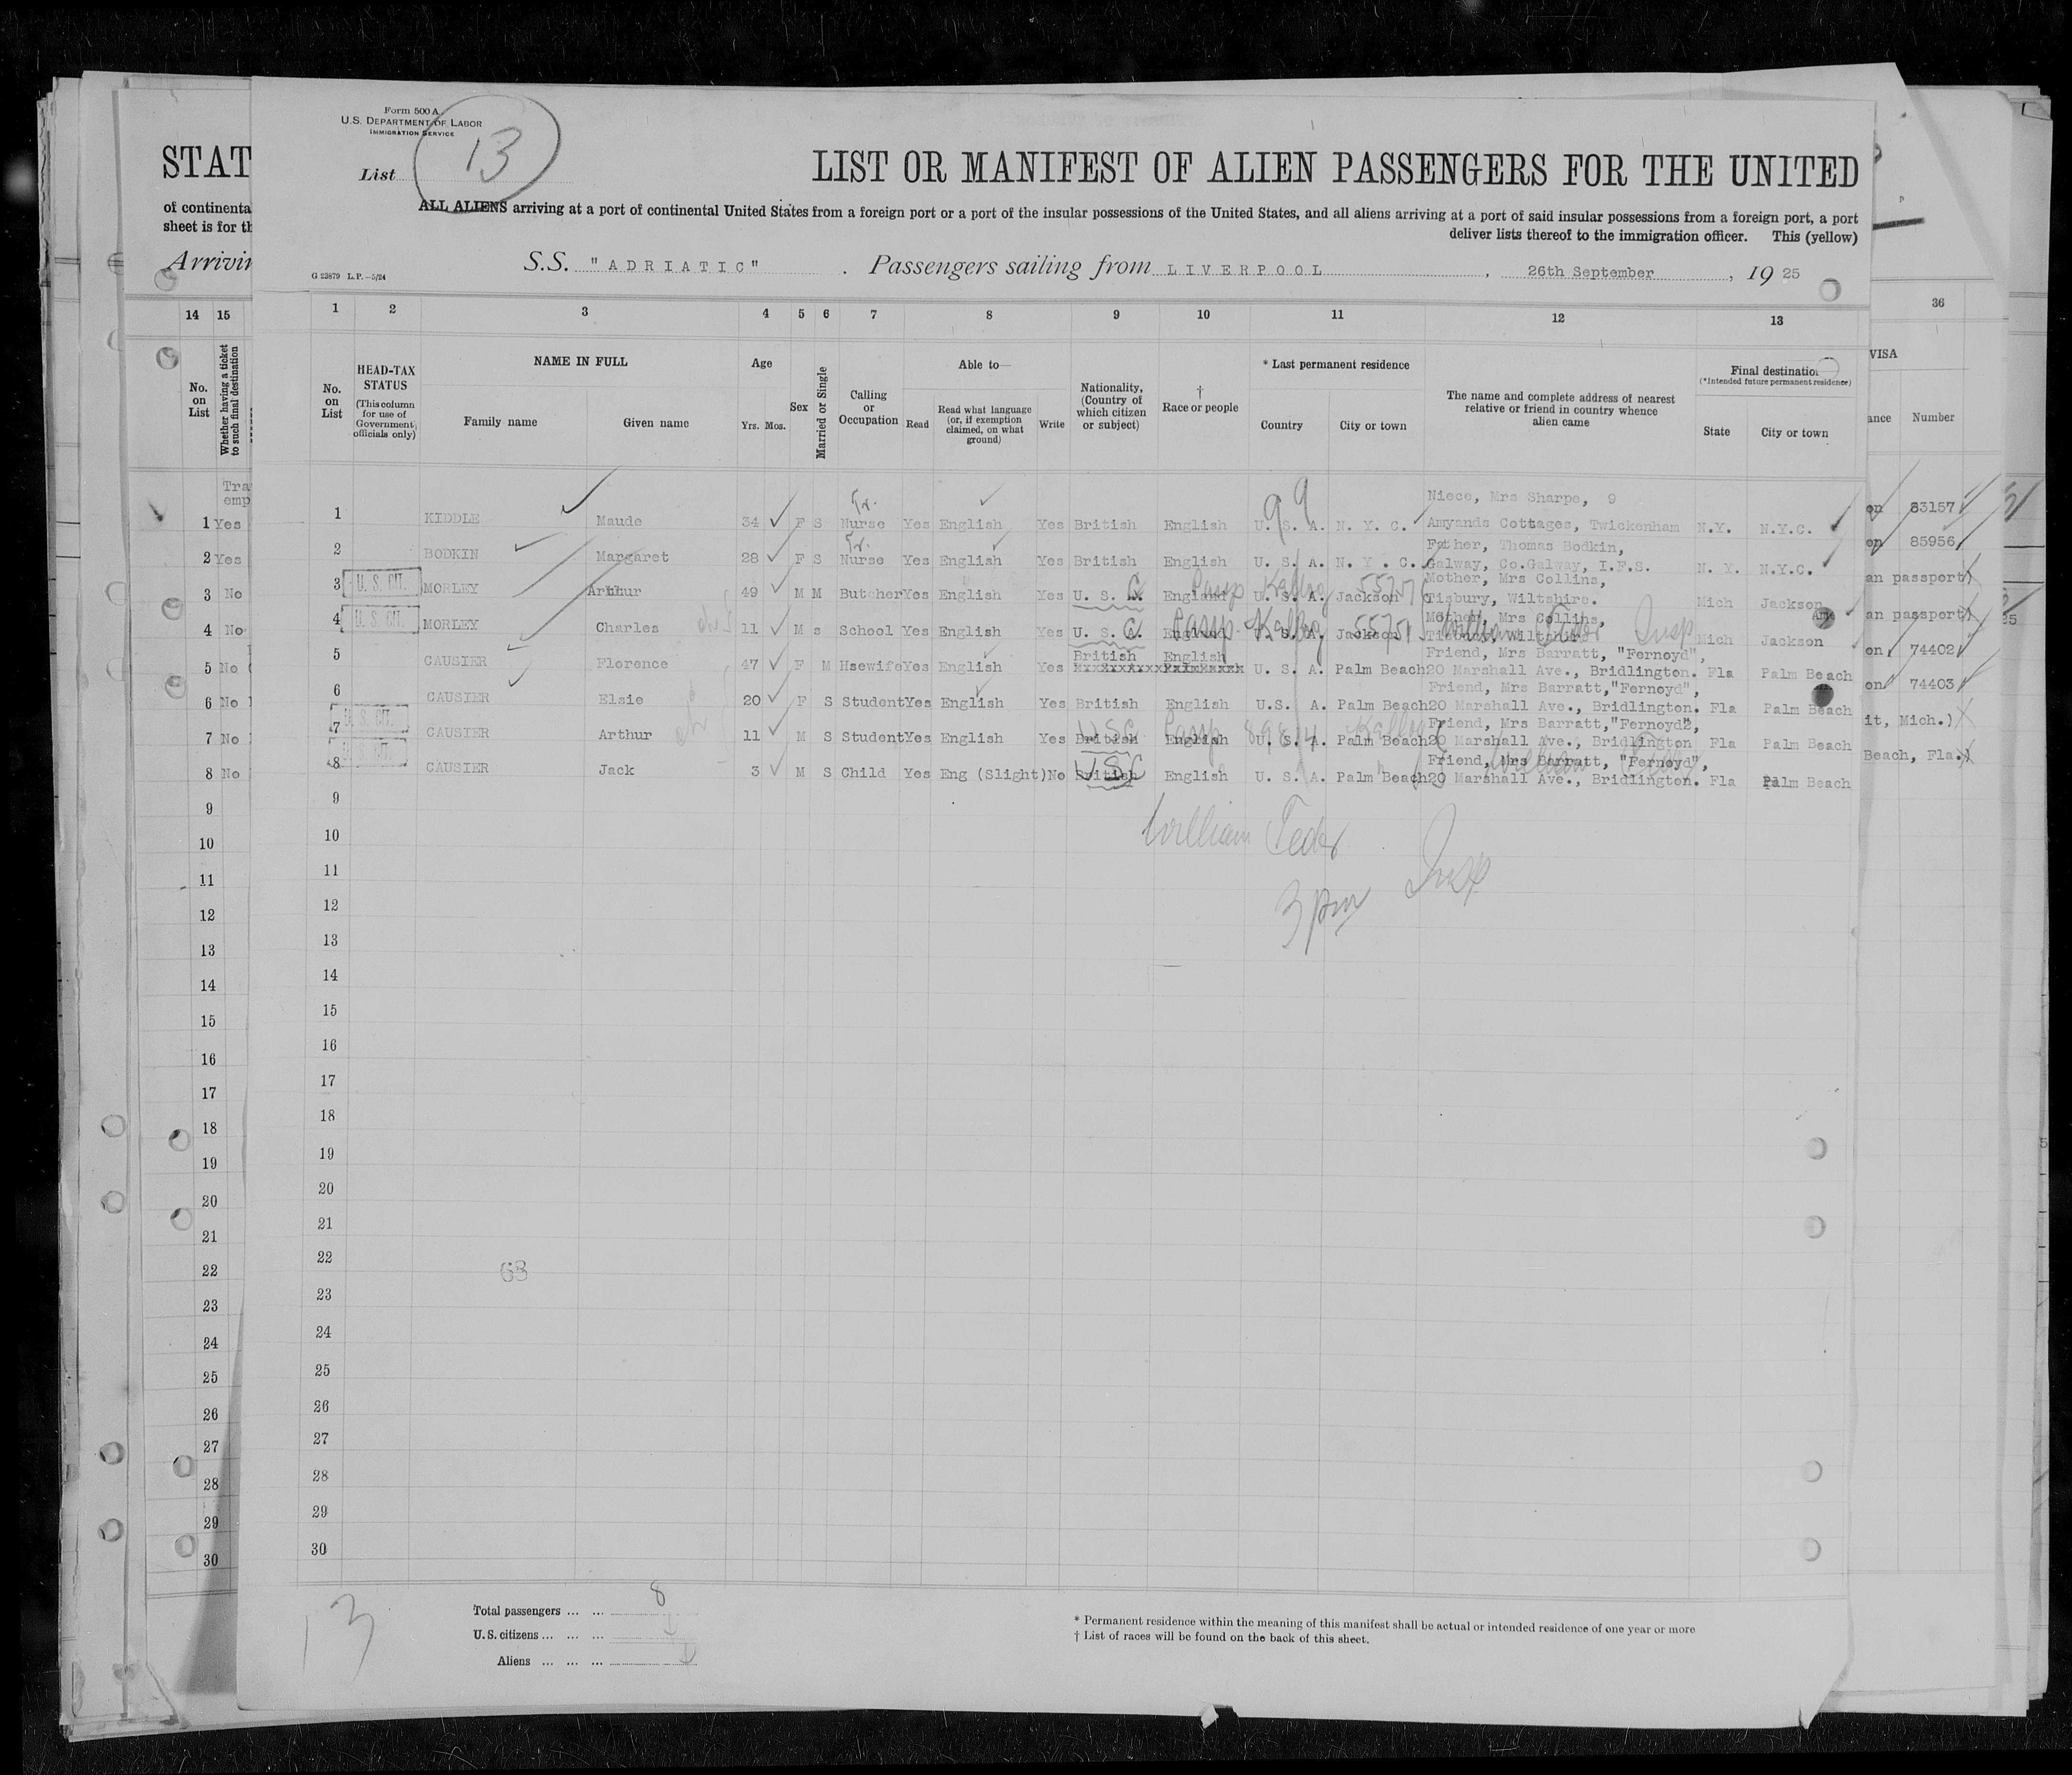 Form 500 A
U.S. DEPARTMENT OF LABOR
IMMIGRATION SERVICE
List 13
STAT
LIST OR MANIFEST OF ALIEN PASSENGERS FOR THE UNITED
of continenta
ALL ALIENS arriving at a port of continental United States from a foreign port or a port of the insular possessions of the United States, and all aliens arriving at a port of said insular possessions from a foreign port, a port
sheet is for th
deliver lists thereof to the immigration officer. This (yellow)
Arrivin
G 23879 L.P.—5/24
S.S. "ADRIATIC". Passengers sailing from LIVERPOOL, 26th September, 19 25
14 15
1 2 3 4 5 6 7 8 9 10 11 12 13
36
No. on List
Whether having a ticket to such final destination
No. on List
HEAD-TAX STATUS
(This column for use of Government officials only)
NAME IN FULL
Family name
Given name
Age
Yrs. Mos.
Sex
Married or Single
Calling or Occupation
Able to—
Read
Read what language (or, if exemption claimed, on what ground)
Write
Nationality, (Country of which citizen or subject)
† Race or people
* Last permanent residence
Country
City or town
The name and complete address of nearest relative or friend in country whence alien came
Final destination
(*Intended future permanent residence)
State
City or town
VISA
ance
Number
Tra
emp
Niece, Mrs Sharpe, 9
1 Yes
1 KIDDLE Maude 34 F S Nurse Yes English Yes British English U. S. A. N. Y. C. Amyands Cottages, Twickenham N.Y. N.Y.C.
on 83157
Father, Thomas Bodkin,
2 Yes
2 BODKIN Margaret 28 F S Nurse Yes English Yes British English U. S. A. N. Y. C. Galway, Co.Galway, I.F.S. N. Y. N.Y.C.
on 85956
Mother, Mrs Collins,
3 No
3 U. S. CIT. MORLEY Arthur 49 M M Butcher Yes English Yes U. S. A. England U. S. A. Jackson Tisbury, Wiltshire. Mich Jackson
an passport)
Mother, Mrs Collins,
4 No
4 U. S. CIT. MORLEY Charles 11 M s School Yes English Yes U. S. A. England U. S. A. Jackson Tisbury, Wiltshire Mich Jackson
an passport)
British English Friend, Mrs Barratt, "Fernoyd",
5 No
5 CAUSIER Florence 47 F M Hsewife Yes English Yes U. S. A. Palm Beach 20 Marshall Ave., Bridlington. Fla Palm Beach
on 74402
Friend, Mrs Barratt,"Fernoyd",
6 No
6 CAUSIER Elsie 20 F S Student Yes English Yes British English U.S. A. Palm Beach 20 Marshall Ave., Bridlington. Fla Palm Beach
on 74403
USC Friend, Mrs Barratt,"Fernoyd2,
7 No
7 U. S. CIT. CAUSIER Arthur 11 M S Student Yes English Yes British English U. S. A. Palm Beach 20 Marshall Ave., Bridlington Fla Palm Beach
it, Mich.)
USC Friend, Mrs Barratt, "Fernoyd",
8 No
8 U. S. CIT. CAUSIER Jack 3 M S Child Yes Eng (Slight) No British English U. S. A. Palm Beach 20 Marshall Ave., Bridlington. Fla Palm Beach
Beach, Fla.)
9 9
10 10
William
11 11
Insp
12 12
3 pm
13 13
14 14
15 15
16 16
17 17
18 18
19 19
20 20
21 21
22 22
63
23 23
24 24
25 25
26 26
27 27
28 28
29 29
30 30
13
Total passengers ... ... 8
U.S. citizens ... ... ...
Aliens ... ... ...
* Permanent residence within the meaning of this manifest shall be actual or intended residence of one year or more
† List of races will be found on the back of this sheet.